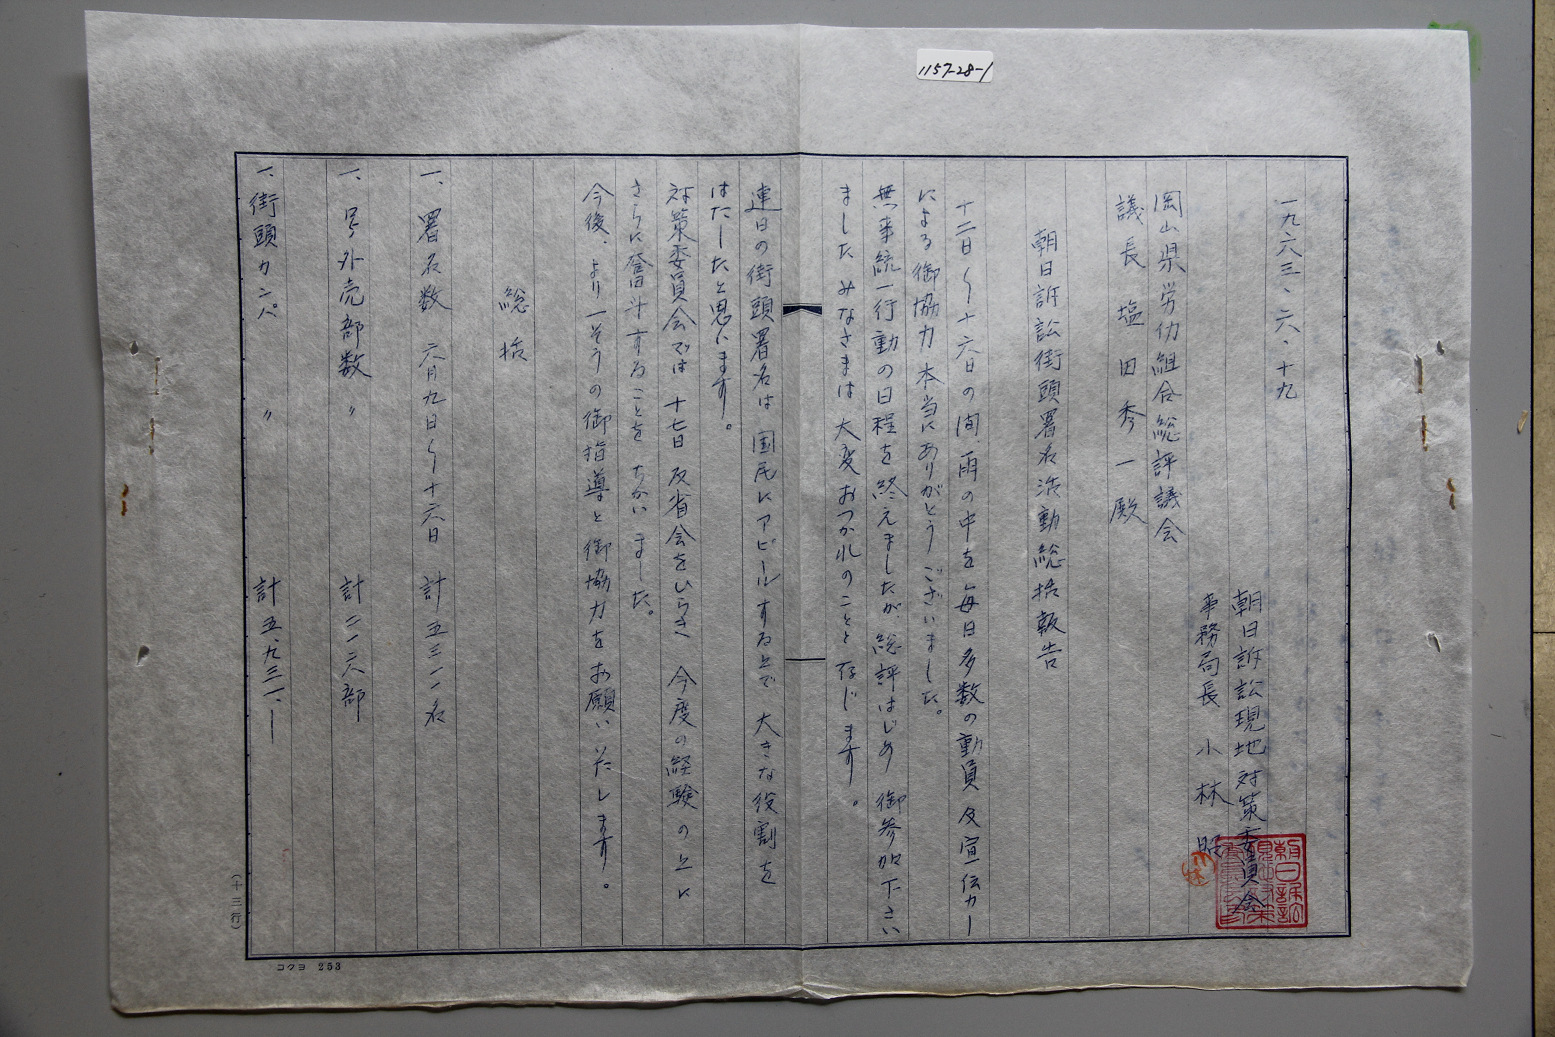 1157-28-1
一九六三、六、十九
朝日訴訟現地対策委員会
事務局長 小林 昭
岡山県労仂組合総評議会
議長 塩田秀一殿
朝日訴訟街頭署名活動総括報告
十二日〜十六日の間、雨の中を毎日多数の動員及宣伝カー
による御協力本当にありがとうございました。
無事統一行動の日程を終えましたが、総評はじめ御参加下さい
ました みなさまは大変おつかれのことと存じます。
連日の街頭署名は国民にアピールする上で大きな役割を
はたしたと思います。
対策委員会では十七日反省会をひらき 今度の経験の上に
さらに奮斗することを ちかいました。
今後、より一そうの御指導と御協力をお願いいたします。
総括
一、署名数 六月九日〜十六日 計 五三一一名
一、号外売部数 〃 計 二一六部
一、街頭カンパ 〃 計 五、九三一、ー
(十三行)
コクヨ 253